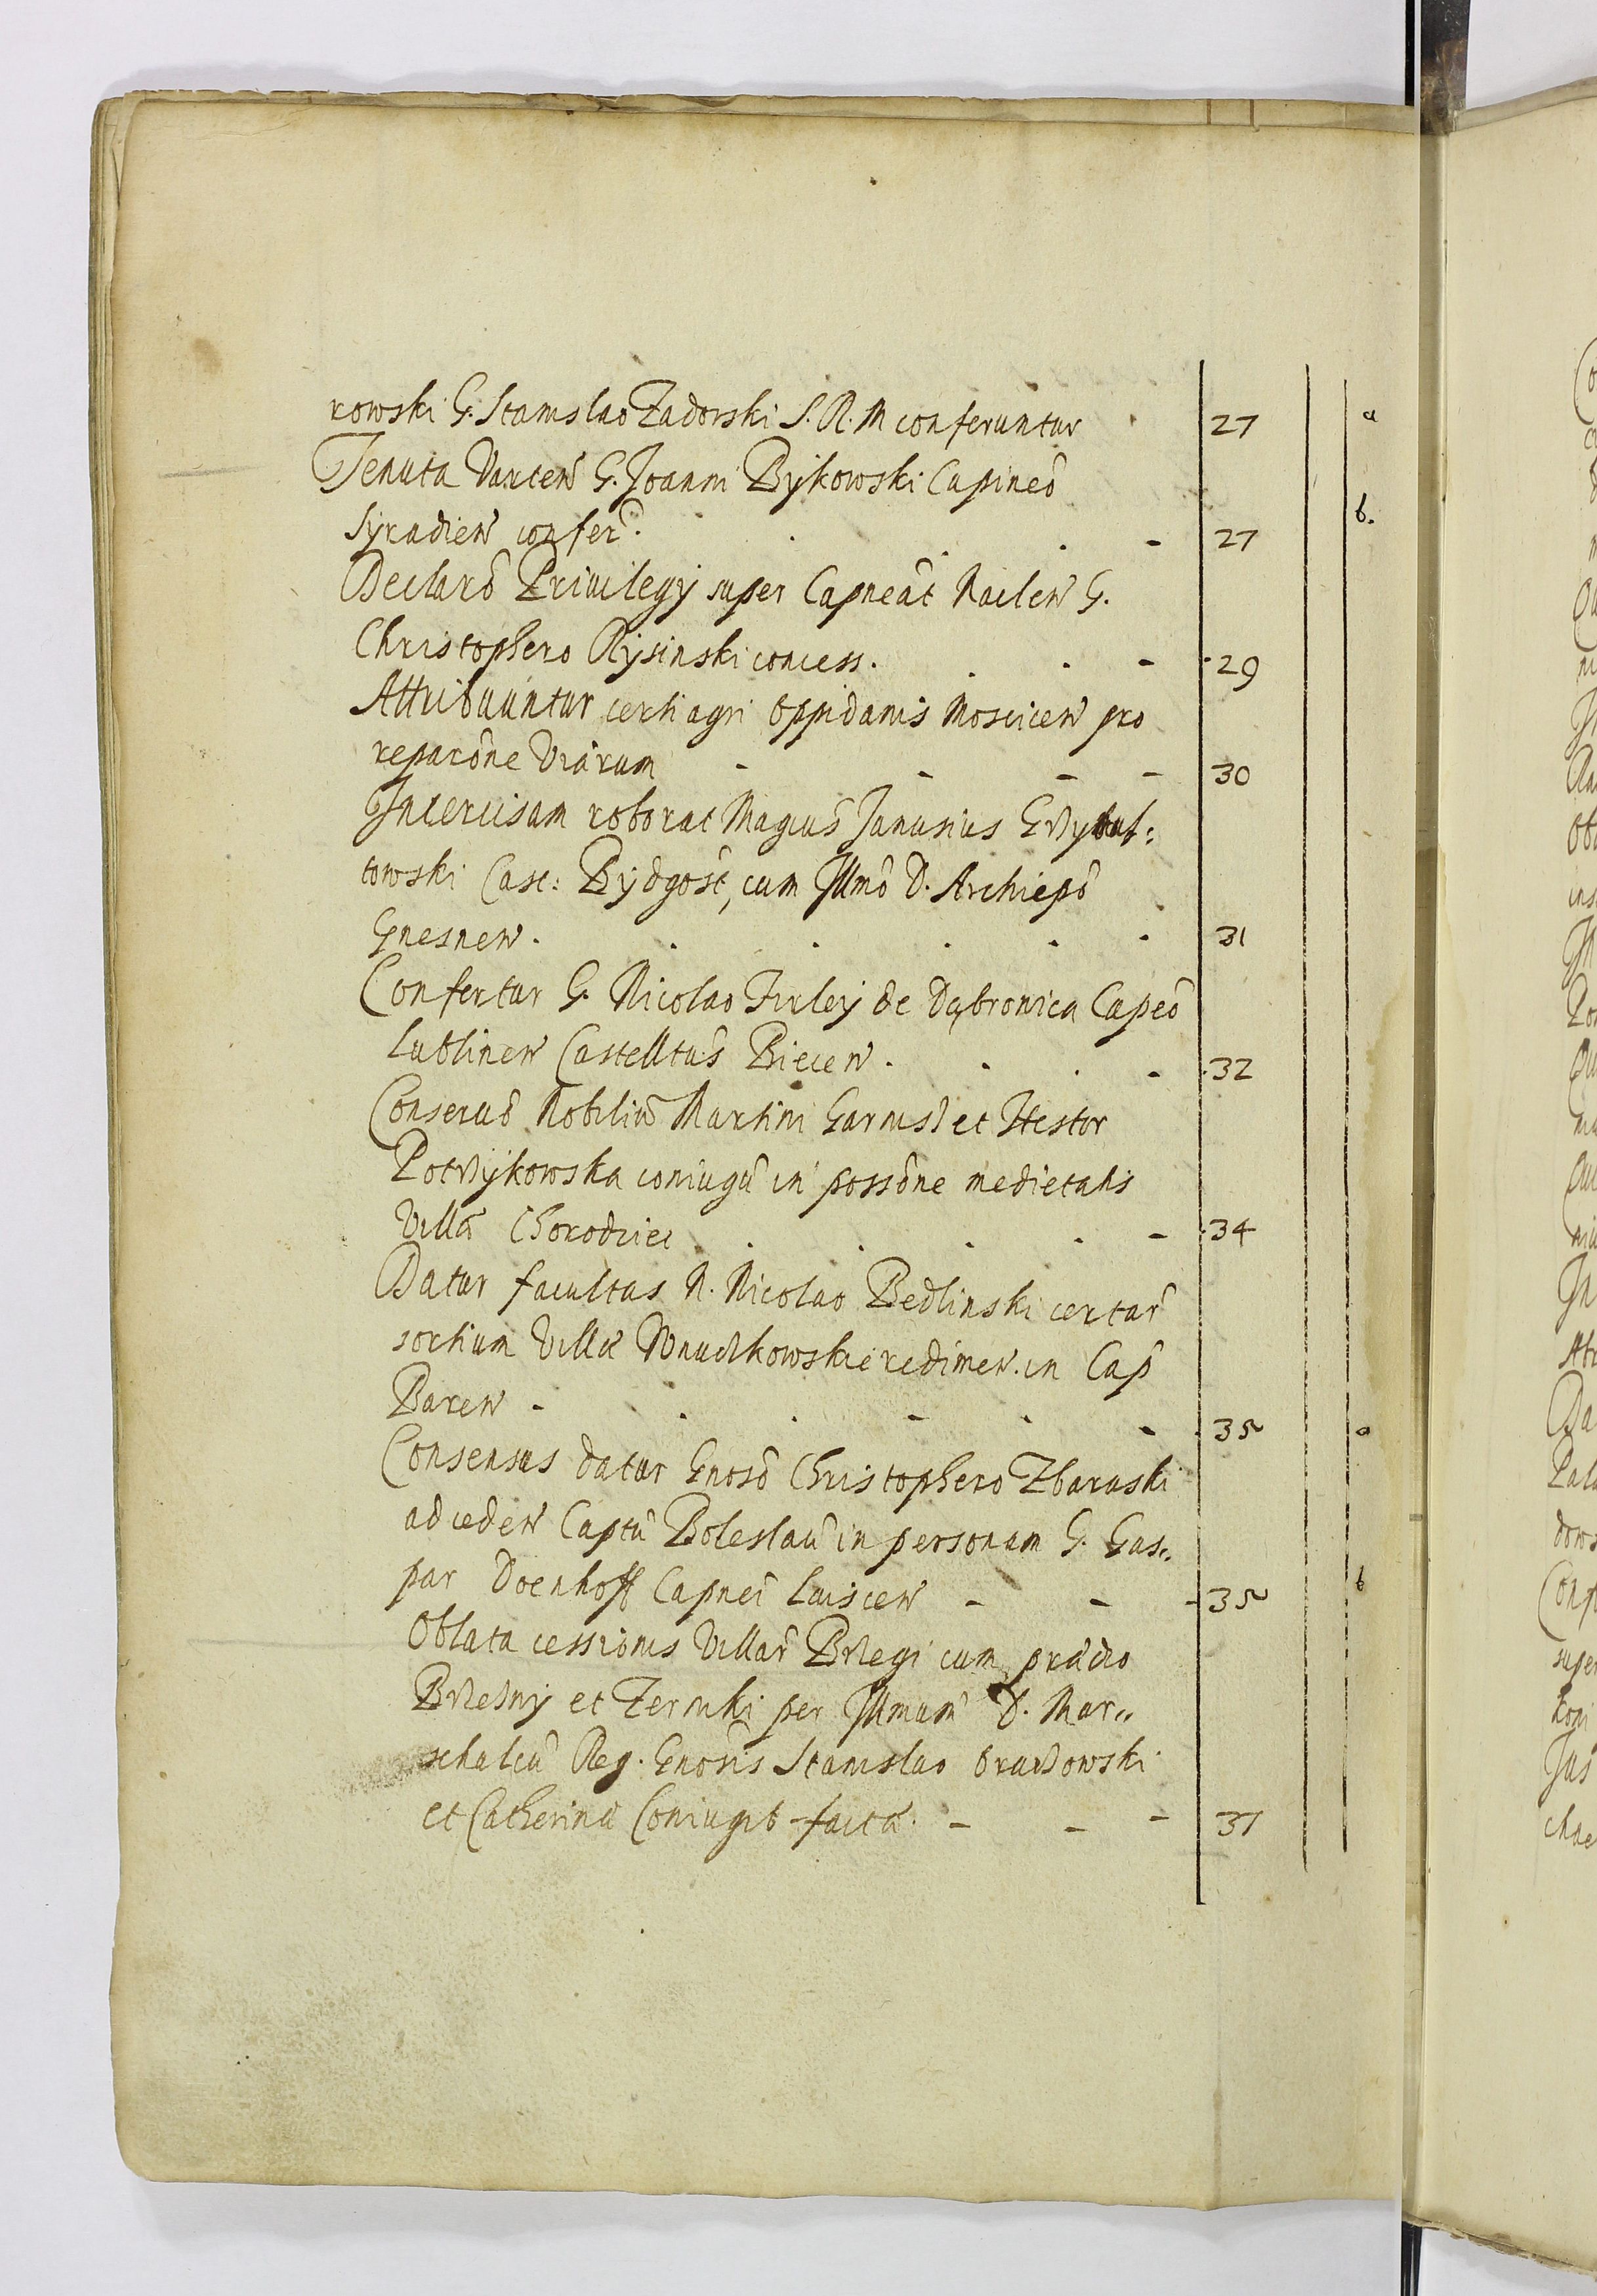 rowski G. Stanislao Zadorski S. R. M conferuntur 27 a
Tenuta Varten G. Joanni Bykowski Capineo
Syradien confer. 27 b.
Declaro Privilegij super Capneat Naclen G.
Christophero Rysinski concess. 29
Attribuuntur certi agri oppidanis Moscicen pro
reparone Viarum 30
Intercisam roborat Magcus Janusius
towski Cast: Bydgost, cum Illmo D. Archiepo
Gnesnen. 31
Confertur G. Nicolao Firley de Dąbrowica Capeo
Lublinen Castelltus Biecen. 32
Conseruo Nobiliu Martini Garnish et Hester
coniugu in possone medietatis
Villa Chorodziec 34
Datur facultas N. Nicolao Bedlinski certar
sortium Villae redimen. in Cap
Baren 35 a
Consensus datur Gnoso Christophero Zbaraski
ad ceden Captu Boleslau in personam G. Gas„
par Doenhoff Capnei Laiscen 35 b
Oblata cessionis Villar Brzegi cum prædio
Brzesny et Zerniki per Illmum D. Mar„
schalcu Reg. Gnosis Stanislao
et Catherina Coniugib facta. 37